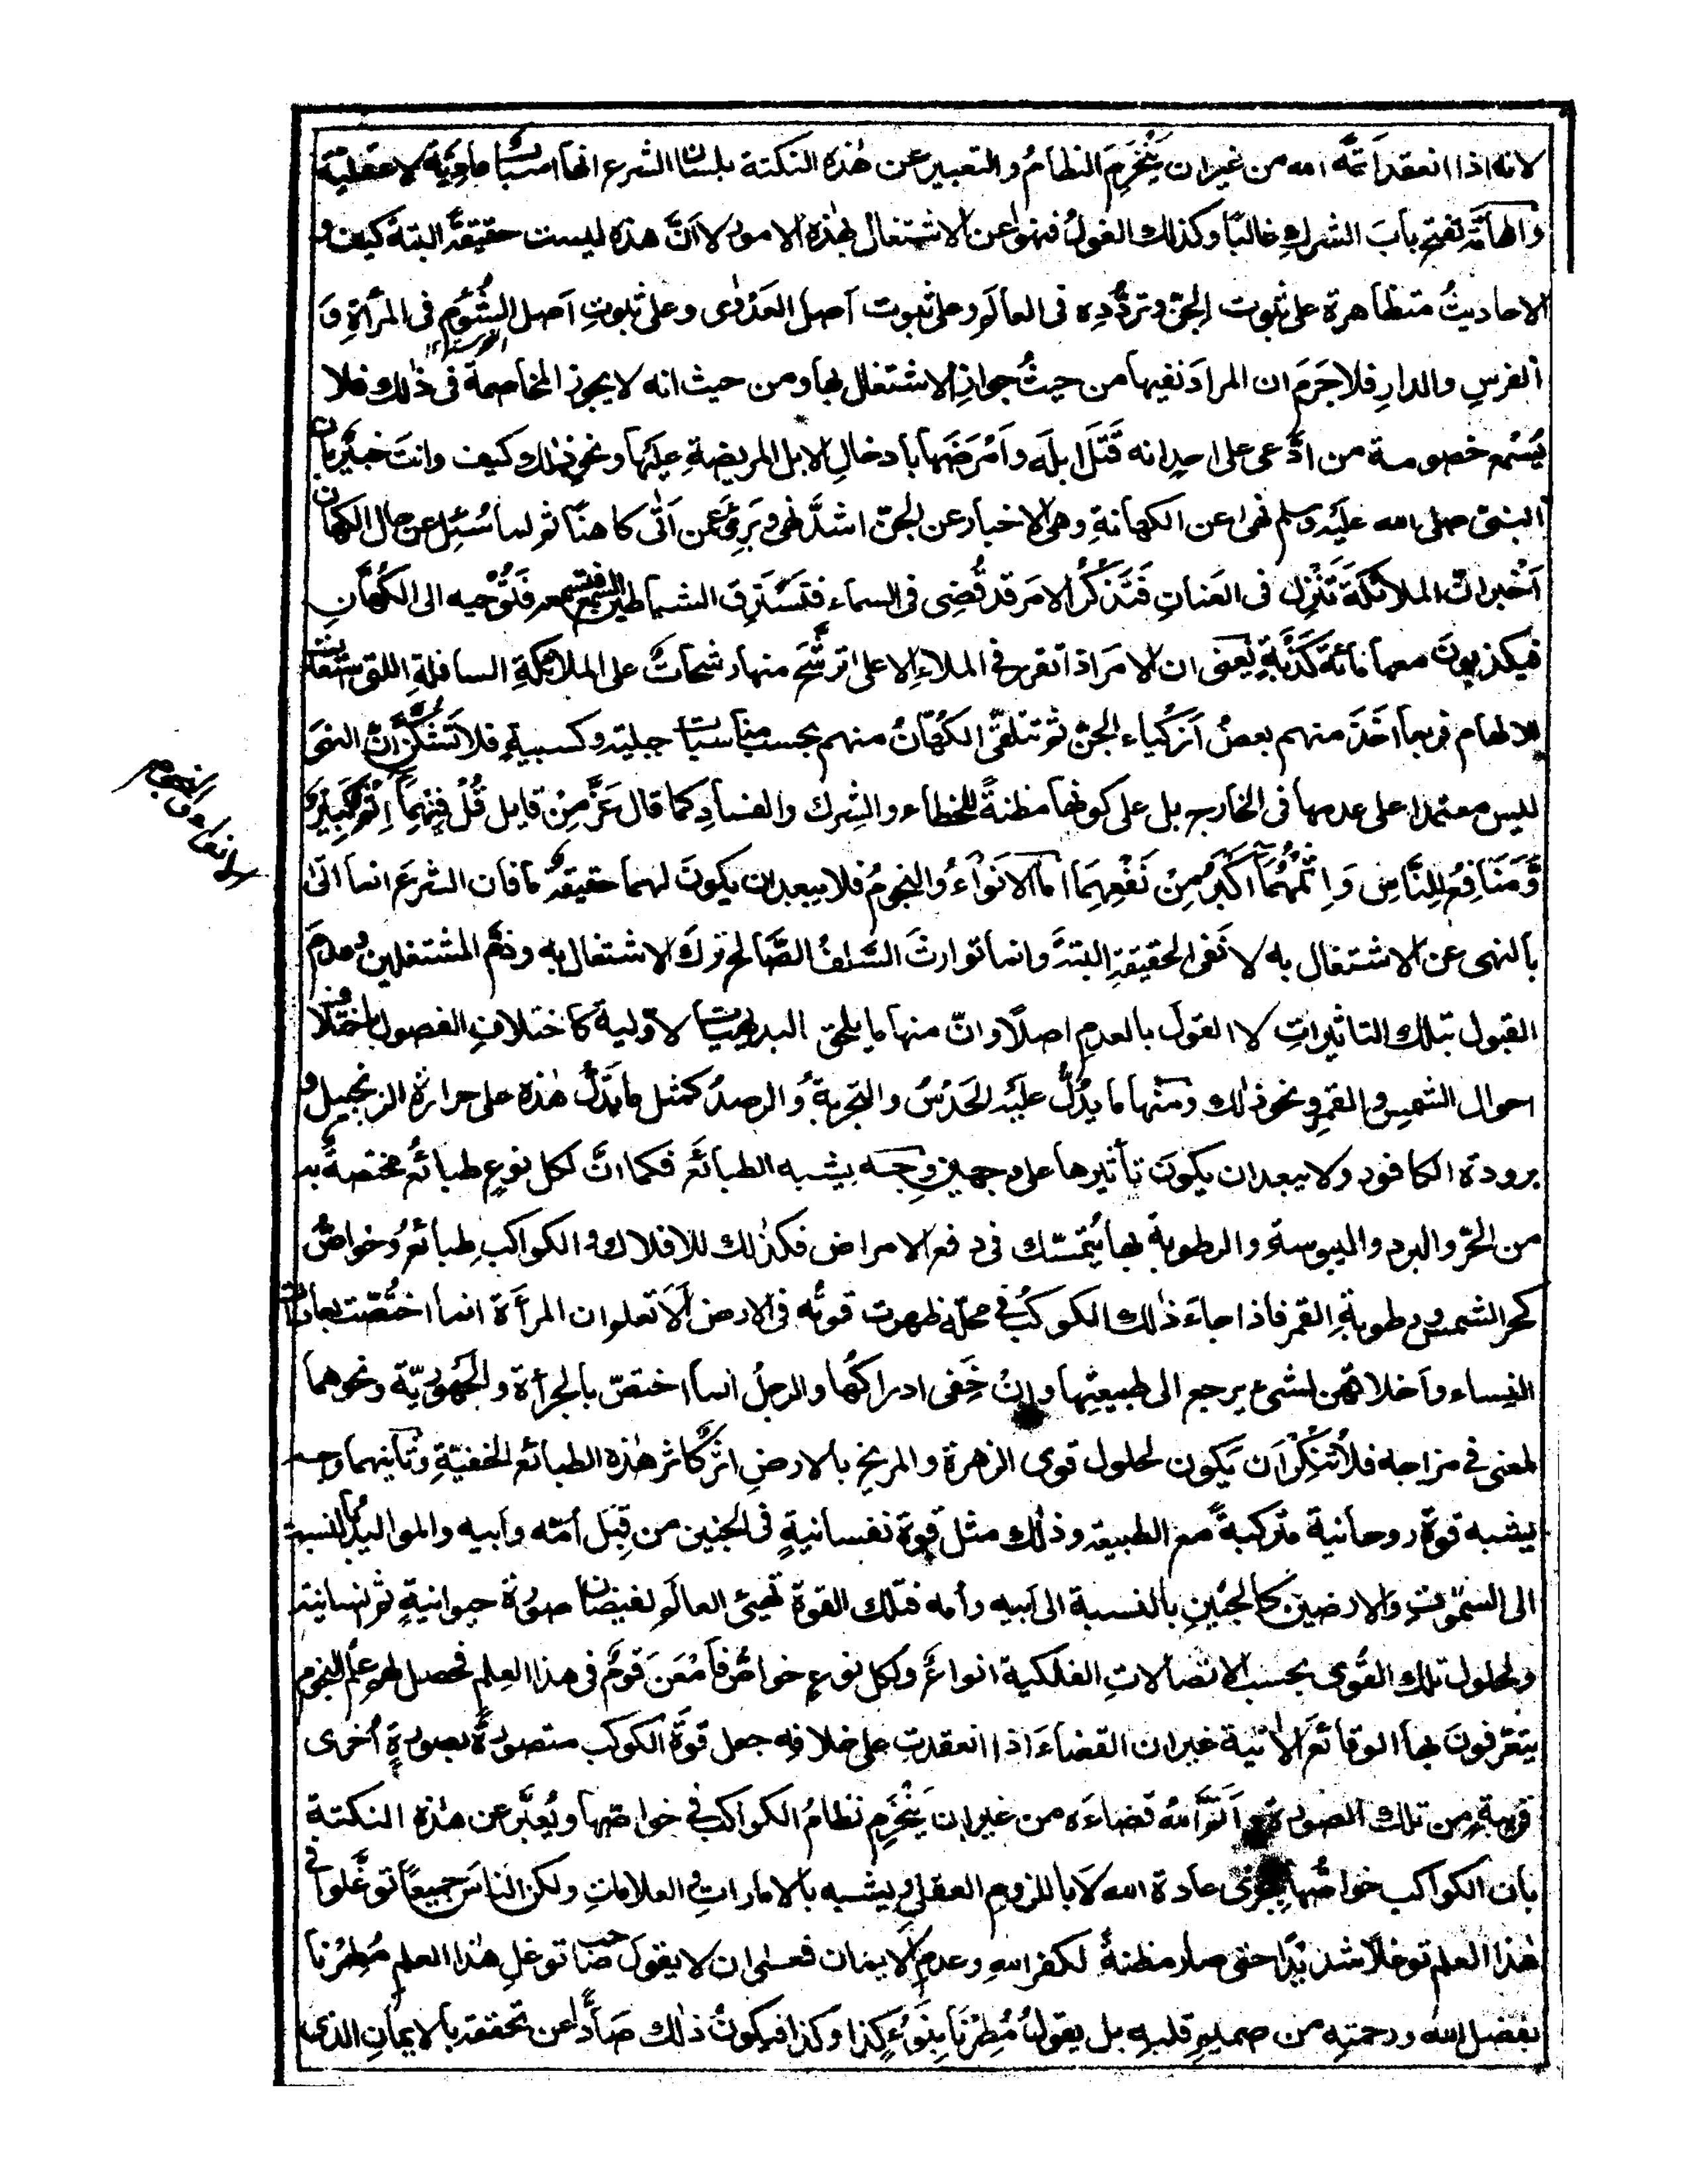 لانه اذا انعقد اتمّه الله من غير ان ينخرم النظامُ والتعبير عن هذه النكتة بلسان الشرع انها اسباب عادية لا عقلية
والهامّة تفتح بابَ الشركِ غالبًا وكذلك الغولُ فنهوا عن الاشتغال بهذه الامور لا انَّ هذه ليست حقيقةً البتة كيف و
الاحاديثُ متظاهرة على ثبوت الجنّ وتردُّدِه فى العالَم وعلى ثبوت اصل العَدْوى وعلى ثبوتِ اصل الشُّؤْمِ فى المرأةِ وَ
الفرسِ والدارِ فلا جَرَمَ ان المرادَ نفيها من حيثُ جوازِ الاشتغال بها ومن حيث انه لا يجوز المخاصمة فى ذٰلك فلا
يُسْمع خصومة من ادَّعى على احدٍ انه قَتَلَ ابلَه وأَمْرَضَها بادخالِ الابل المريضةِ عليها ونحو ذلك وكيف وانتَ خبيرٌ بان
النبىّ صلى الله عليه وسلم نهى عن الكهانةِ وهى الاخبار عن الجنّ اشدَّ نهى وبَرِئَ عمن اَتٰى كاهنًا ثم لما سُئِل عن حال الكهان
اَخْبَر انّ الملائكةَ تَنْزِل فى العَنانِ فَتَذْكُرُ الامرَ قد قُضِى فى السماء فتَسْتَرِق الشياطين السمع فتسمعه فَتُوْحيه الى الكُهّانِ
فيكذبونَ معها مائةَ كَذْبَةٍ يعنى ان الامرَ اذا تقرر فى الملاءِ الاعلى ترشّحَ منها رشحاتٌ على الملائكةِ السافلةِ اللتى استعدّت
للالهام فربما اخَذَ منهم بعضُ اَزكياء الجنّ ثم تتلقّى الكُهّانُ منهم بحسب مناسبات جبلية وكسبيةٍ فلا تَشُكَّنَّ انَّ النهىَ
ليس معتمدا على عدمها فى الخارج بل على كونها مظنةً للخطاء والشِرك والفسادِ كما قال عَزَّ مِنْ قايل قُلْ فِيْهِمَا اِثْمٌ كَبِيْرٌ
وَّمَنَافِعُ لِلنَّاسِ وَاِثْمُهُمَا اَكْبَرُ مِنْ نَفْعِهِمَا اما الاَنْوَاءُ والنجومُ فلا يبعد ان يكونَ لهما حقيقةٌ ما فان الشرعَ انما اتٰى
بالنهى عن الاشتغال به لا نَفىِ الحقيقةِ البتةَ وانما توارثَ السَّلفُ الصَّالح تركَ الاشتغال به وذمَّ المشتغلين وعدمَ
القبول بتلك التاثيراتِ لا القولَ بالعدمِ اصلًا وانّ منها ما يلحق البديهيات الاوّلية كاختلافِ الفصول باختلاف
احوال الشمسِ والقمرِ ونحو ذلك ومنها ما يدُلُّ عليْه الحَدْسُ والتجربةُ والرصدُ كمثل ما تدلّ هٰذه على حرارةِ الزنجبيل و
برودة الكافور ولا يبعد ان يكونَ تأثيرها على وجهين وجه يشبه الطبائعَ فكما انَّ لكل نوعٍ طبائعُ مختصةٌ به
من الحرّ والبرد واليبوسة والرطوبة بها يُتمسّك فى دفع الامراض فكذلك للافلاك والكواكبِ طبائعُ وخواصُّ
كحرّ الشمس ورطوبةِ القمر فاذا جاءَ ذٰلك الكوكبُ فى محلّه ظهرت قوتُه فى الارض الَا تعلم ان المرأة انما اختُصّت بعادات
النِساء واخلاقهن لشىءٍ يرجع الى طبيعتِها وان خَفى ادراكُها والرجلُ انما اختصّ بالجرأة والجَهوريّة ونحوهما
لمعنى فى مزاجه فلا تُنكِر اَن يَكون لحلول قوى الزهرة والمريخِ بالارضِ اثرٌ كاثر هٰذه الطبائع الخفيّةِ وثانيهما وجه
يشبه قوةً روحانية متركبةً مع الطبيعة وذٰلك مثل قوة نفسانيةٍ فى الجنين من قِبَل اُمّه وابيه والمواليدُ بالنسبة
الى السمٰوٰت والارضين كالجنين بالنسبة الى ابيه وأمه فتلك القوة تهيّئ العالَم لفيضان صورة حيوانيةٍ ثم انسانية
ولحلول تلك القُوى بحسب الاتصالاتِ الفلكية انواعٌ ولكل نوعٍ خواصُّ فاَمْعَنَ قومٌ فى هذا العِلم فحصل لهم علمُ النجوم
يتعّرفونَ بها الوقائعَ الاٰتية غير ان القضاءَ اذا انعقدتِ على خلافِه جعل قوّةَ الكوكب متصورةً بصورةٍ اُخرى
قريبةٍ من تلك الصورة و اَتمَّ اللهُ قضاءَه من غير ان يَنْخَرِم نظامُ الكواكب فى خواصّها ويُعَبَّر عن هٰذه النكتة
بان الكواكب خواصُّها بجَرْى عادة الله لَا باللزوم العقلىِّ ويشبه بالامارات والعلاماتِ ولكن الناسَ جميعاً توغّلوا فى
هٰذا العلم توغلًا شديدًا حتى صار مظنةً لكفر اللهِ وعدمِ الايمان فعسٰى ان لا يقولَ صاحب توغلِ هٰذا العلم مُطِرْنا
بفضل الله ورحمتِه من صميمِ قلبه بل يقولُ مُطِرْنَا بِنَوْءِ كذا وكذا فيكونُ ذٰلك صَادًّا عن تحققه بالايمانِ الذى
الانواء والنجوم